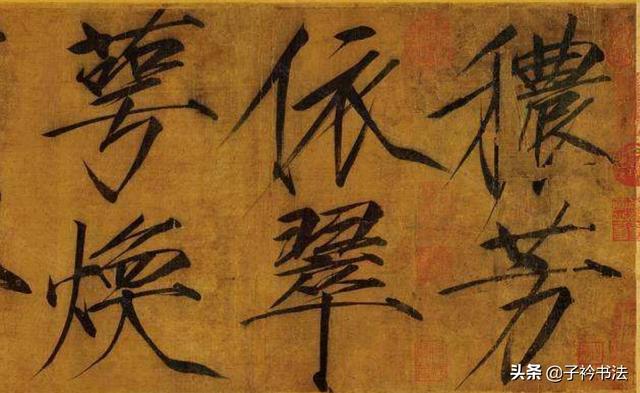 穠芳
依翠
萼煥
头条 @子衿书法